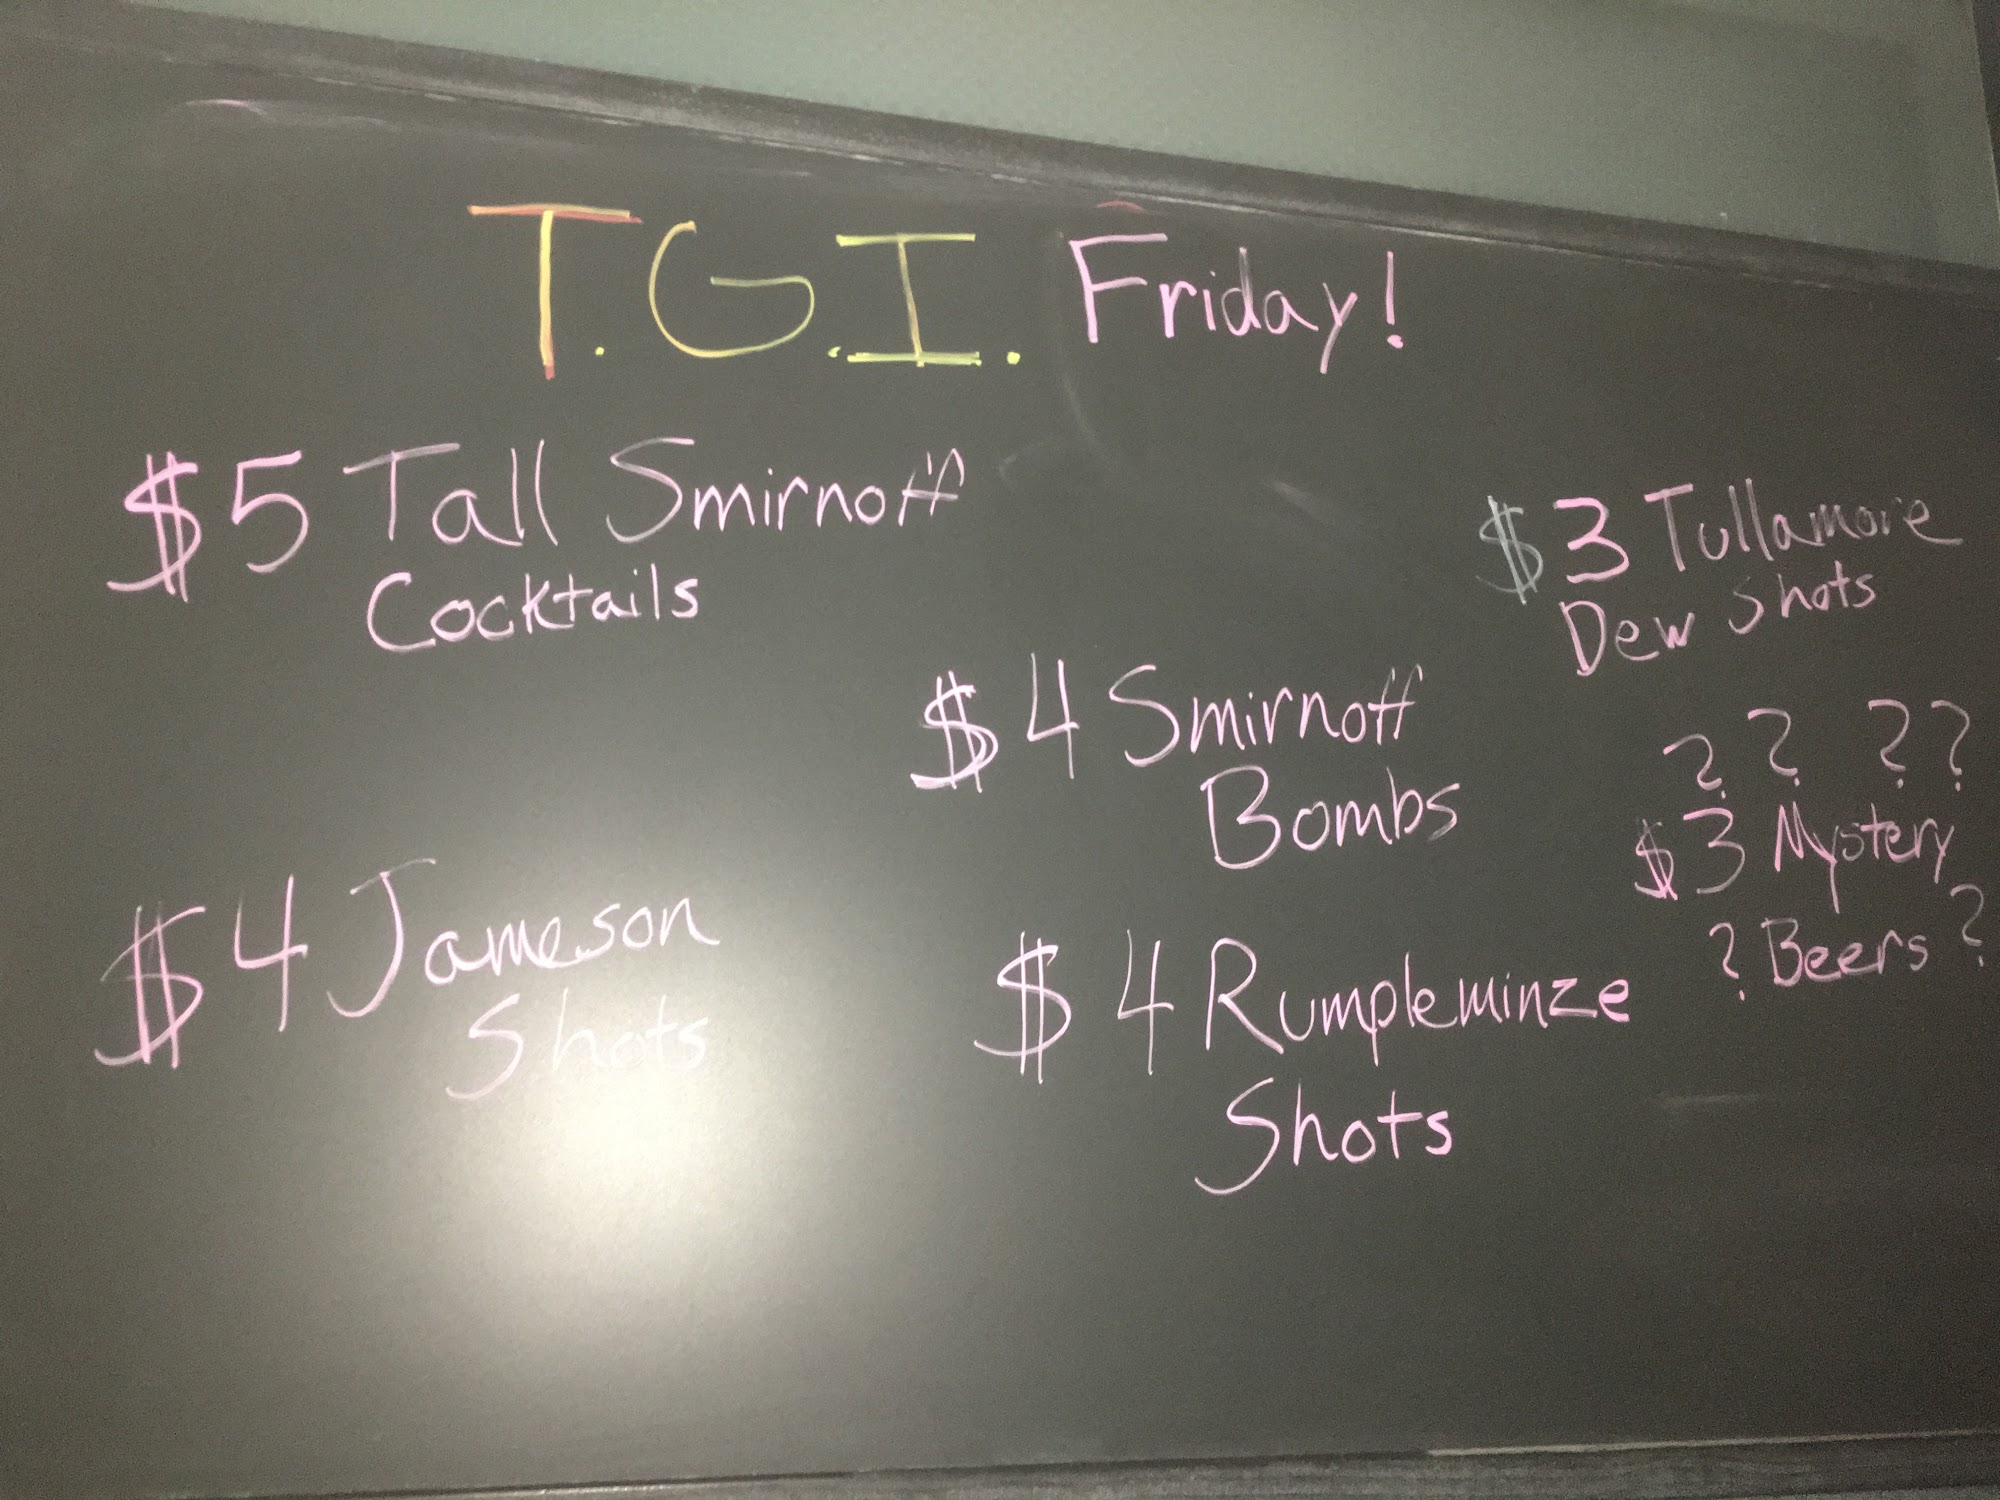 T.G.I. Friday!
$5 Tall Smirnoff
Cocktails
$4 Jameson
Shots
$4 Smirnoff
Bombs
$4 Rumpleminze
Shots
$3 Tullamore
Dew Shots
? ? ? ?
$3 Mystery
? Beers ?